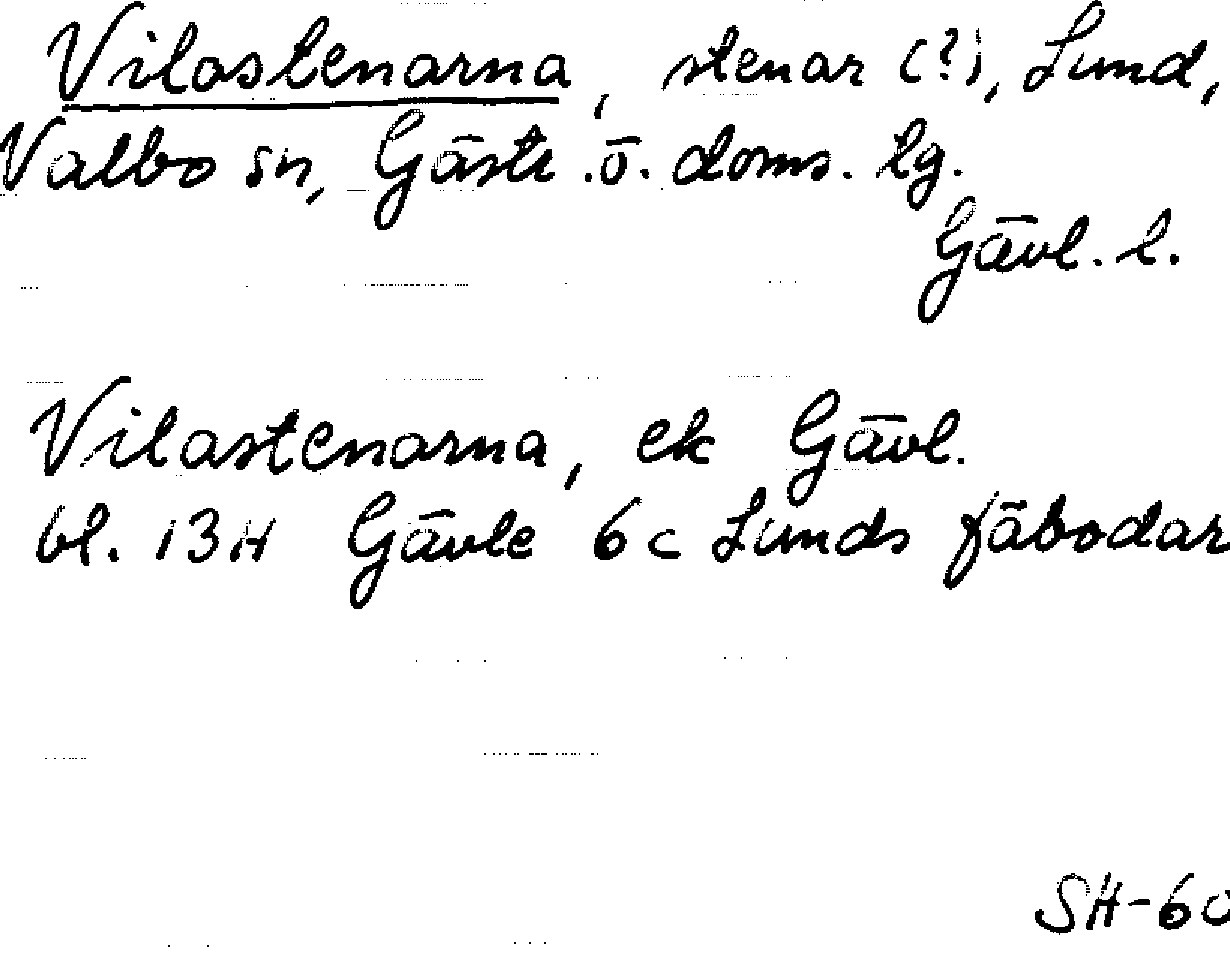 Vilastenarna, stenar (?), Lund,
Valbo sn, Gästr.ö. doms. lg.
Gävl. l.
Vilastenarna, ek Gävl.
bl. 13H Gävle 6c Lunds fäbodar
SH-60